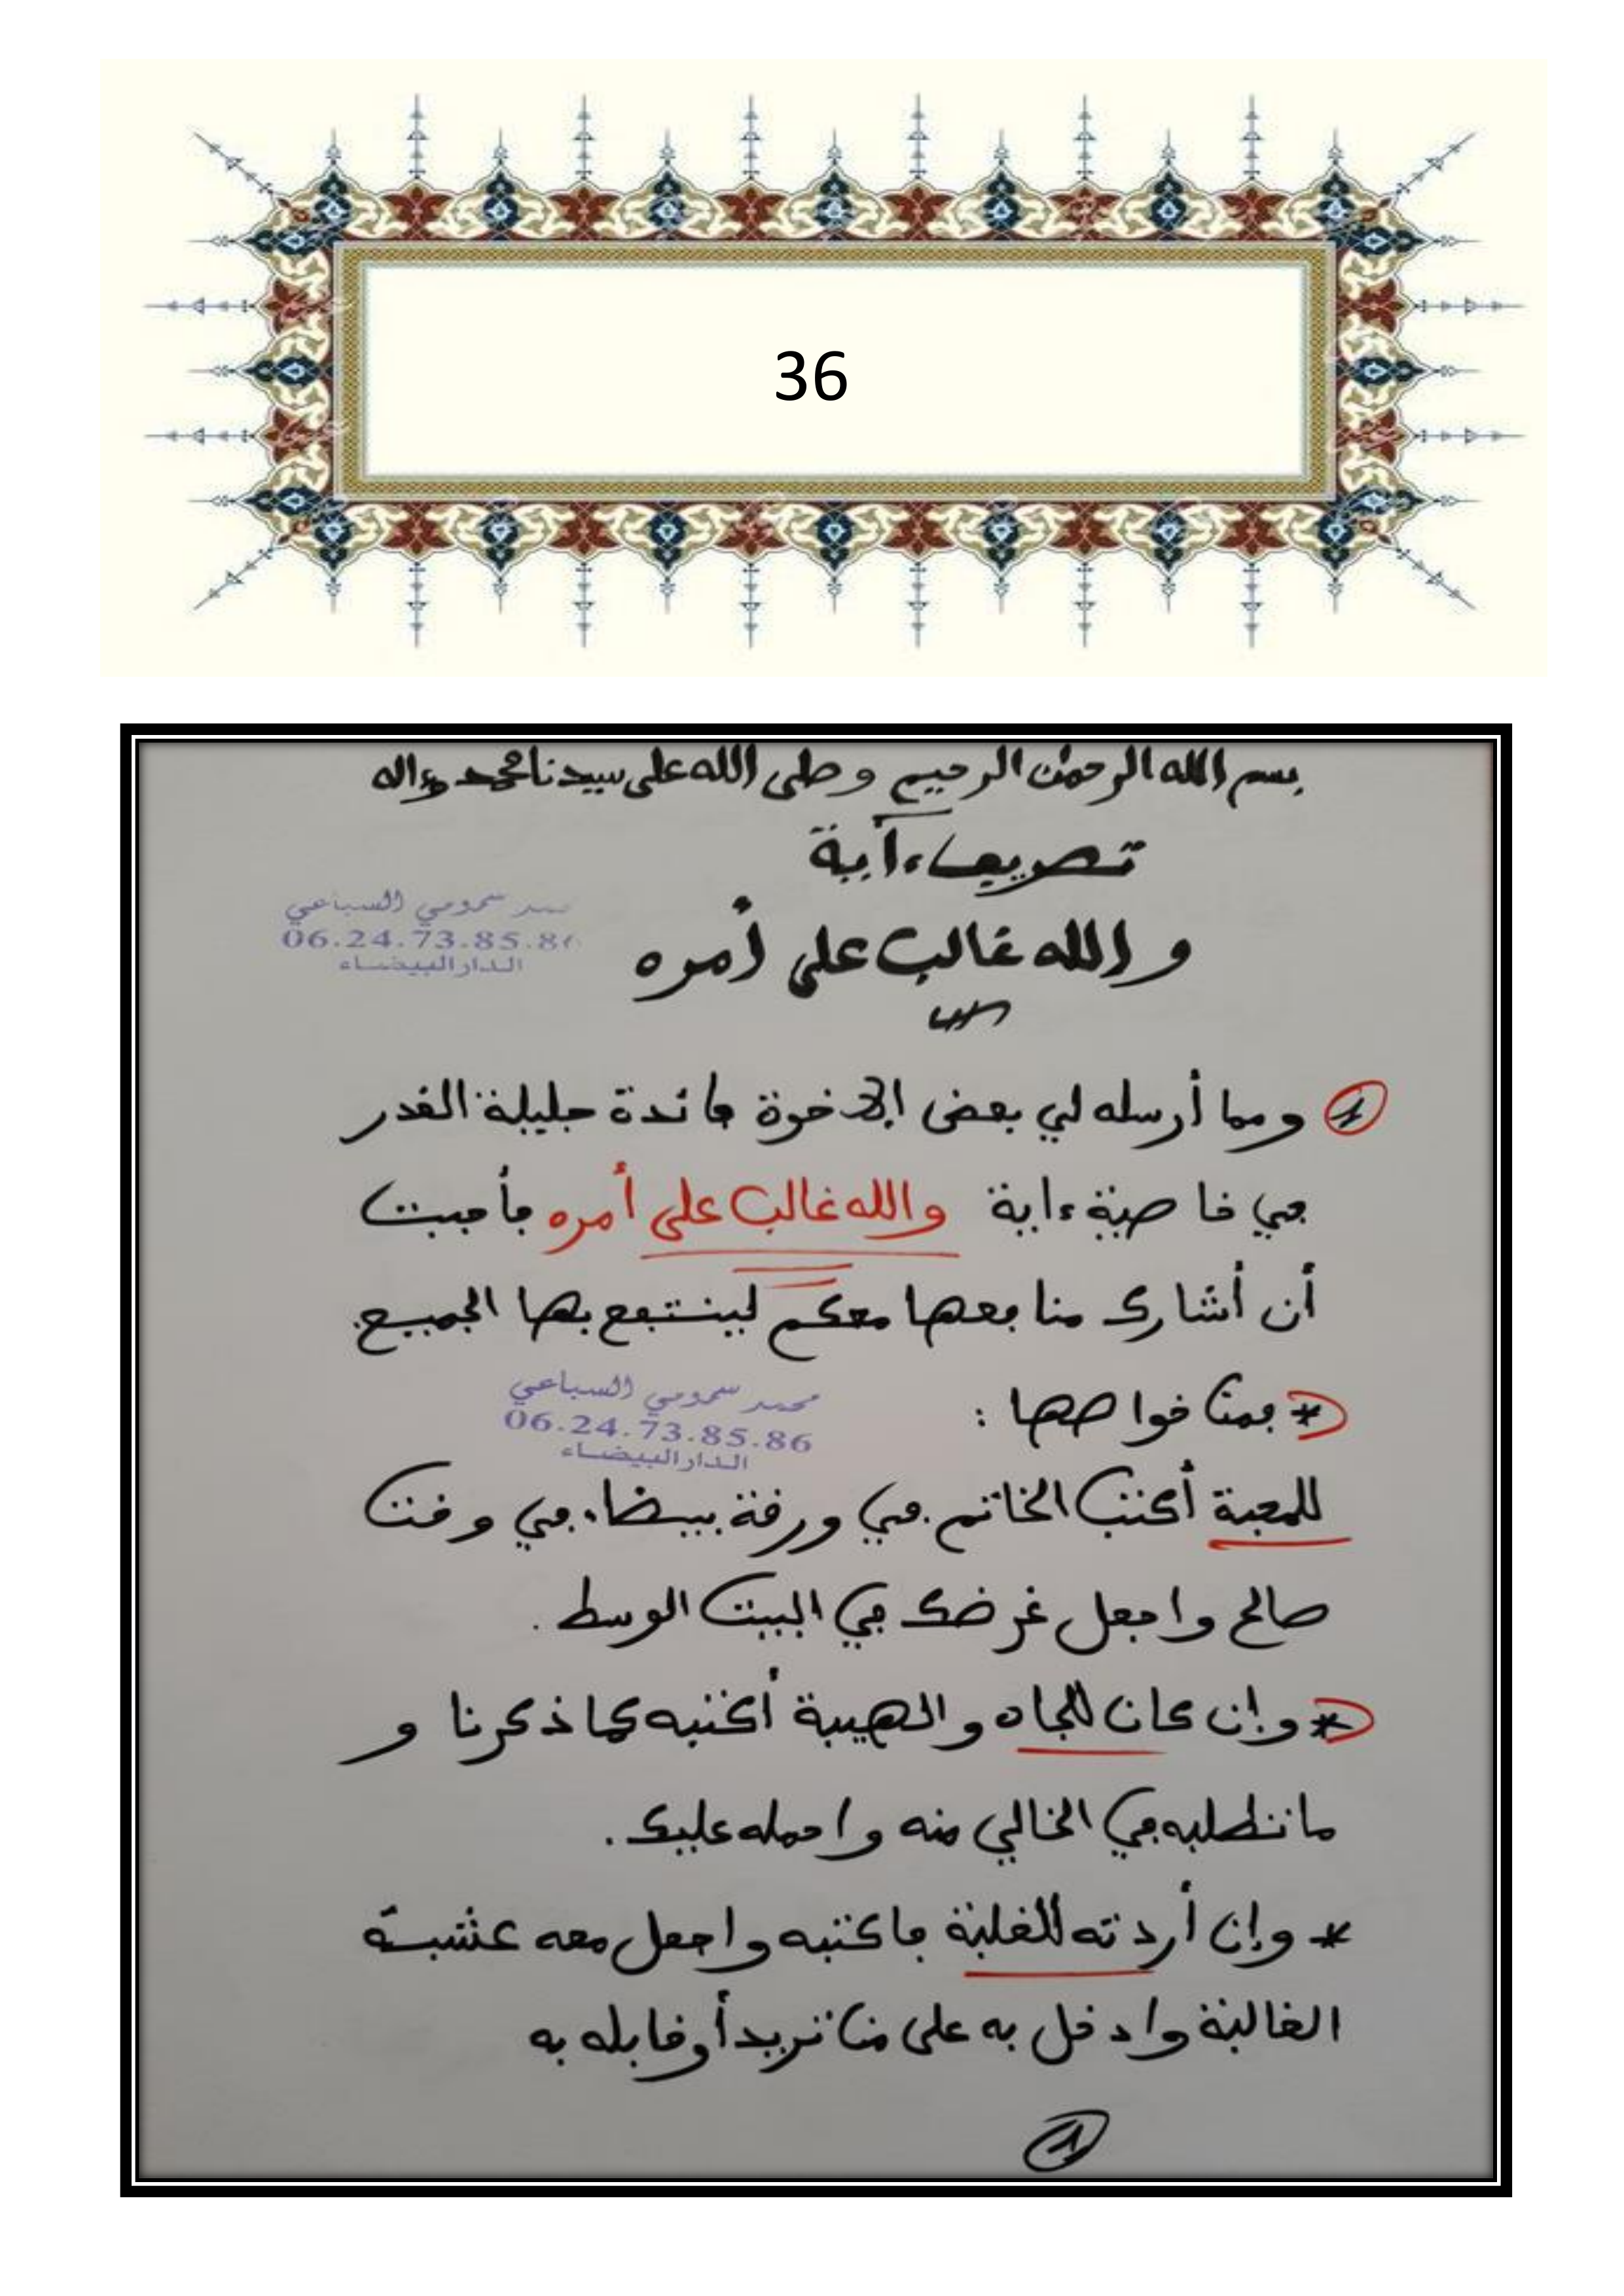 36
بسم الله الرحمن الرحيم وصلى الله على سيدنا محمد وءاله
تصريف ءاية
والله غالب على أمره
سمومي السباعي
06.24.73.85.86
الدار البيضاء
1 ومما أرسله لي بعض الإخوة فائدة جليلة القدر
في خاصية ءاية والله غالب على أمره فأحببت
أن أشارك منافعها معكم لينتفع بها الجميع.
* فمن خواصها :
محمد سمومي السباعي
06.24.73.85.86
الدار البيضاء
للمحبة أكتب الخاتم في ورقة بيضاء في وقت
صالح واجعل غرضك في البيت الوسط .
* وإن كان للجاه والهيبة أكتبه كما ذكرنا و
ما تطلبه في الخالي منه واحمله عليك .
* وإن أردته للغلبة فاكتبه واجعل معه عشبة
الغالبة وادخل به على من تريد أو قابله به
1